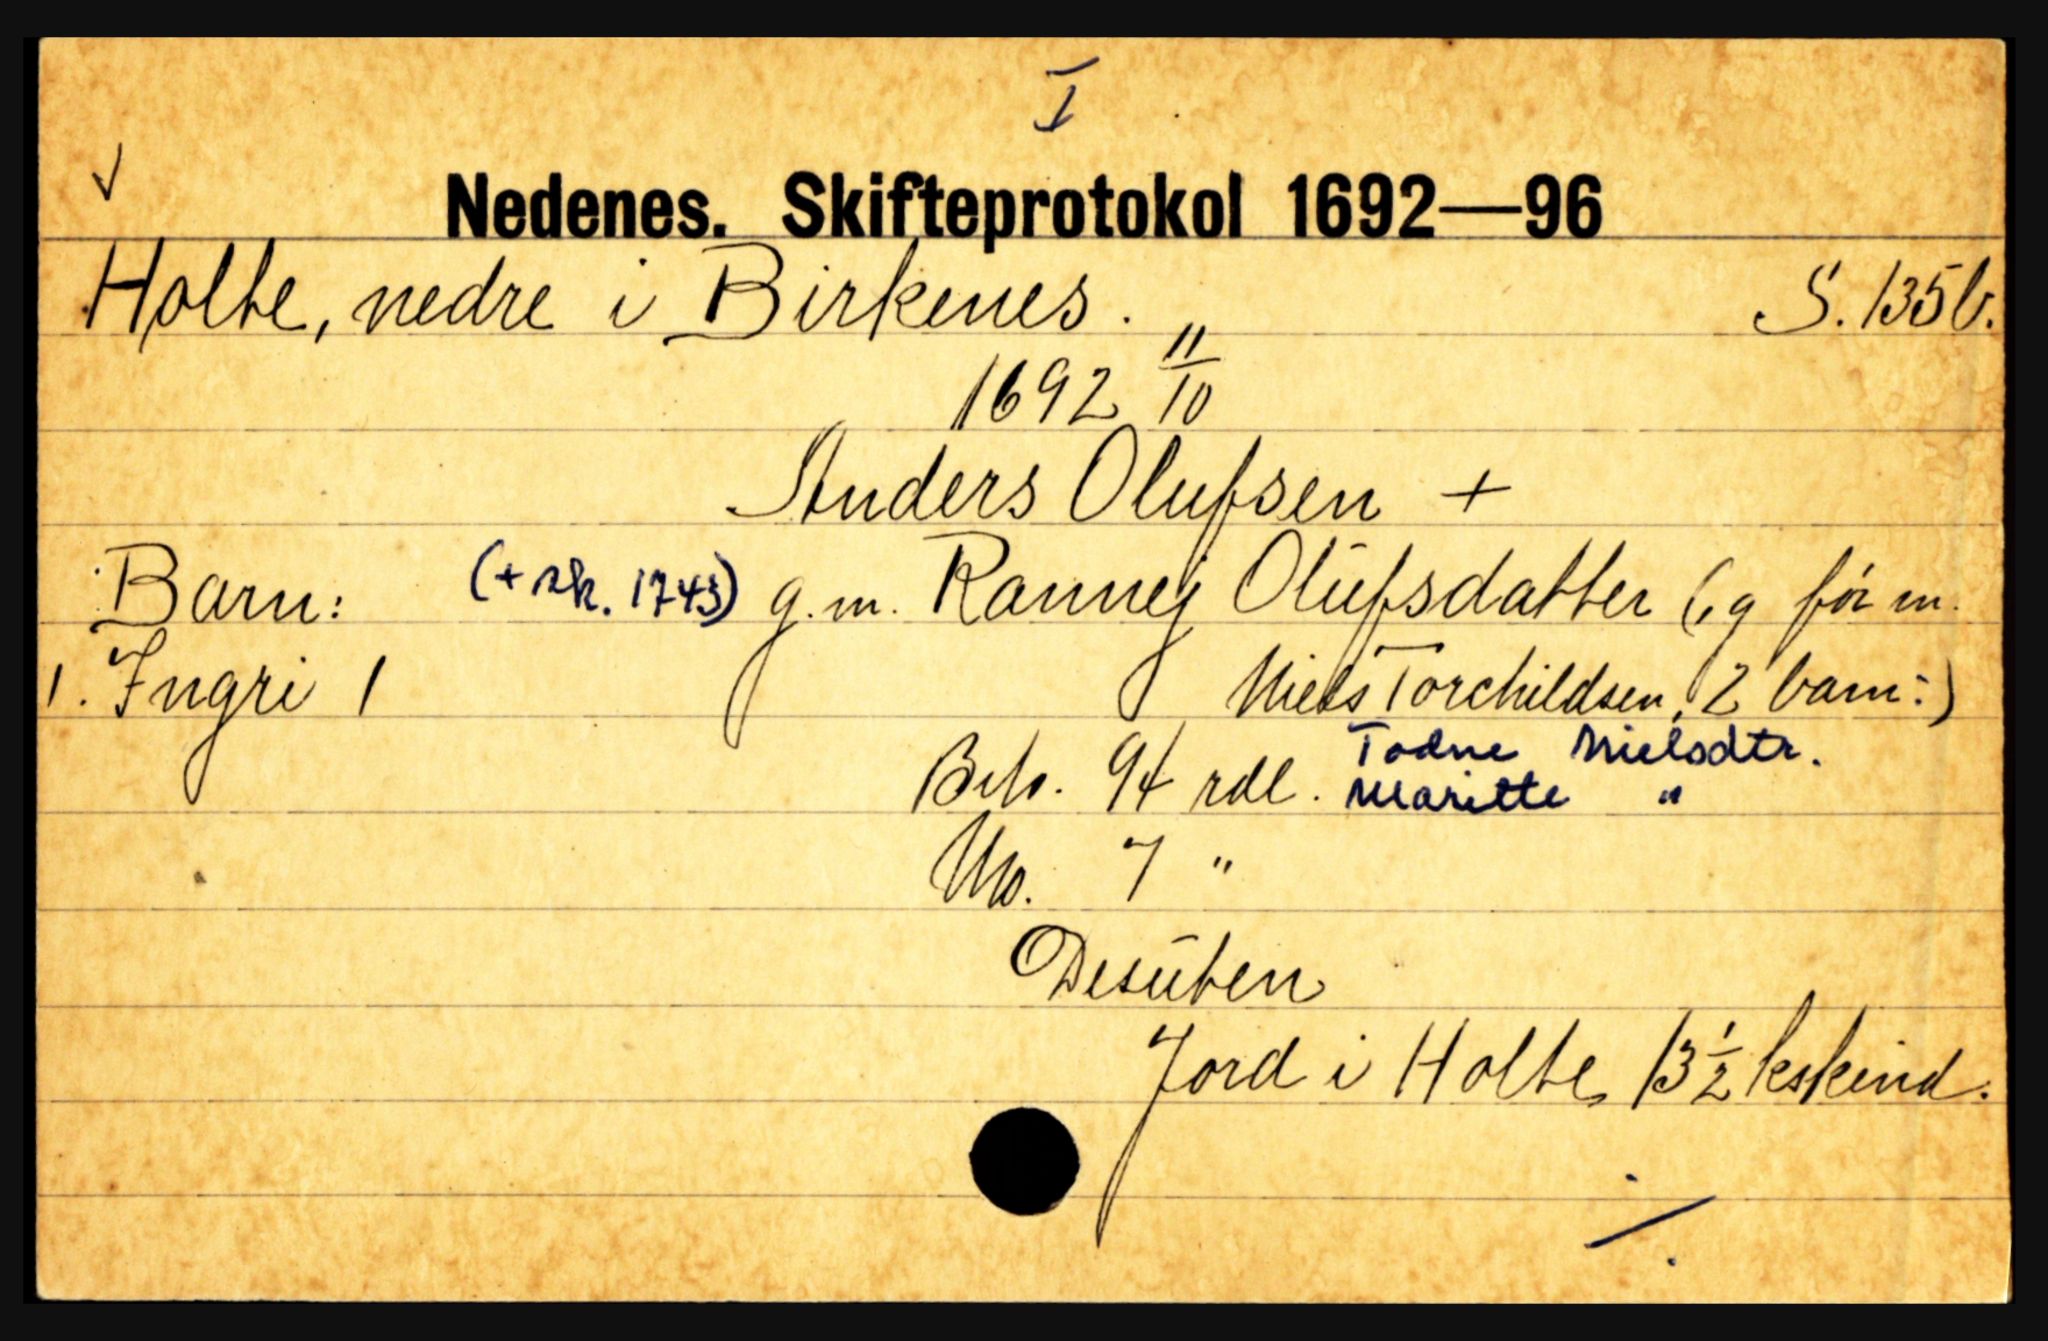 I
Nedenes. Skifteprotokol 1692—96
Holte, nedre i Birkenes. S. 135b.
1692 11/10
Anders Olufsen +
Barn: (+ sk. 1743) g.m. Rannej Olufsdatter (,g før m.
1. Ingri 1 Niels Torchildsen, 2 barn:)
Todne Nielsdtr.
Bto. 94 rdl. Maritte "
No. 7 "
Desuten
Jord i Holte 13 1/2 kskind.